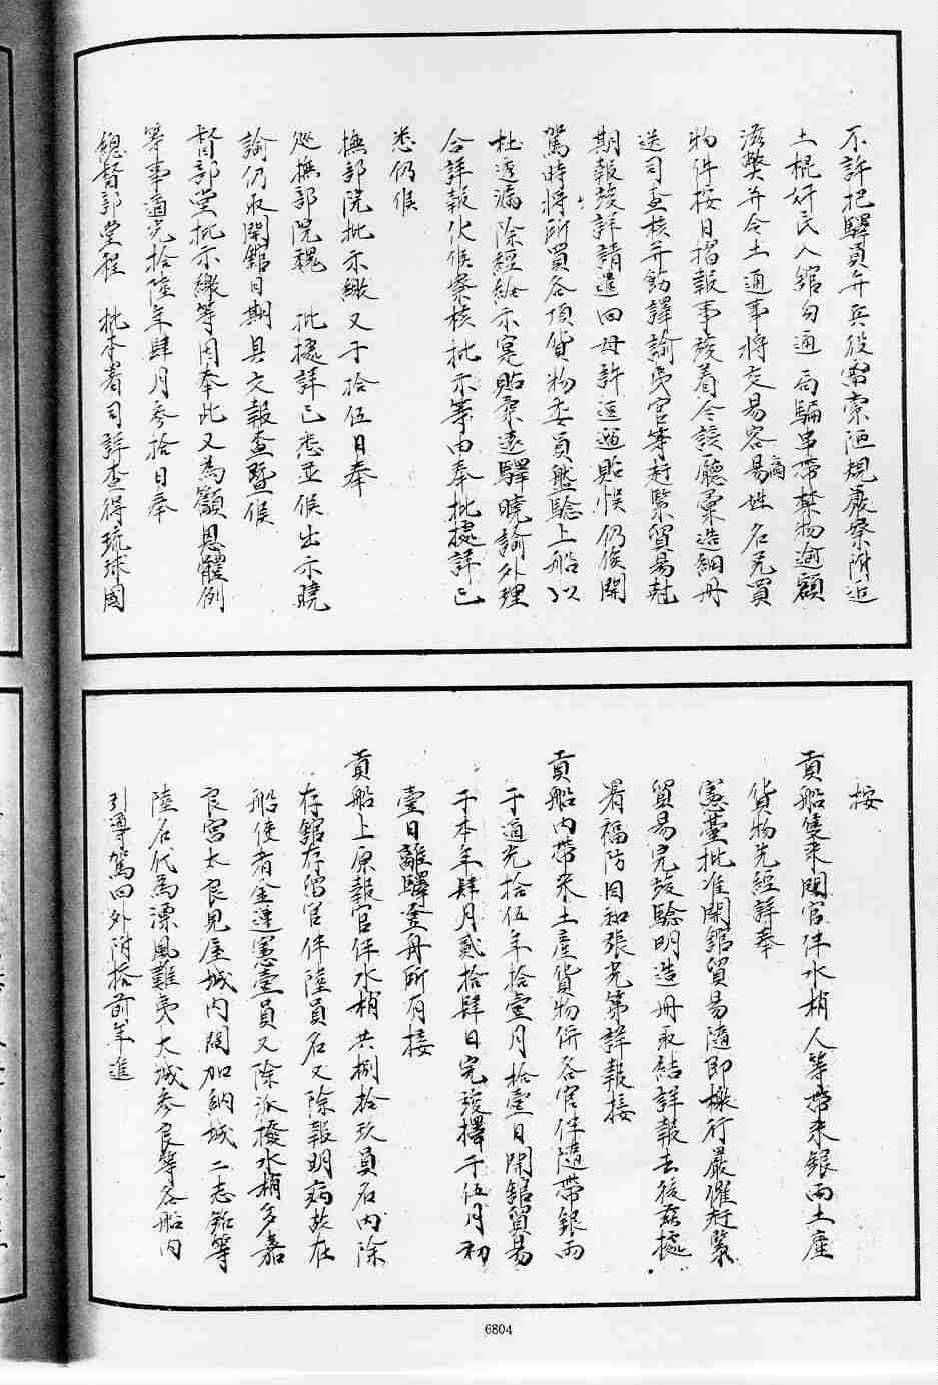 不許把驛員弁兵役需索陋規嚴禁附近
土棍奸民入舘勾通局騙串帶禁物逾額
滋獘并令土通事將交易客商易姓名兄買
物件按日摺報事竣着令該廳彙造細册
送司查核并飭譯諭夷官等赶緊貿易尅
期報竣詳請遣回毋許逗遛貽悮仍俟開
駕時將所買各項貨物委員盤驗上船以
杜透漏除經給示寔貼柔遠驛曉諭外理
合詳報伏候察核批示等由奉批據詳已
悉仍候
撫部院批示繳又于拾伍日奉
廵撫部院魏 批據詳已悉並候出示曉
諭仍取開舘日期具文報查曁候
督部堂批示繳等因奉此又為籲恩體例
等事道光拾陸年肆月叁拾日奉
總督部堂程 批本署司詳查得琉球國
按
貢船隻來閩官伴水梢人等帶來銀兩土產
貨物先經詳奉
憲臺批准開舘貿易隨即檄行嚴催赶緊
貿易完竣驗明造册取結詳報去後茲據
署福防同知張光第詳報接
貢船內帶來土產貨物併各官伴隨帶銀兩
于道光拾伍年拾壹月拾壹日開舘貿易
于本年肆月貳拾肆日完竣擇于伍月初
壹日離驛登舟所有接
貢船上原報官伴水梢共捌拾玖員名內除
存舘存留官伴陸員名又除報明病故在
船使者金達憲壹員又除派撥水梢多嘉
良宮大良見屋城內間加納城二志鉛等
陸名代為漂風難夷大城叁良等各船內
引導駕回外附搭前年進
6804